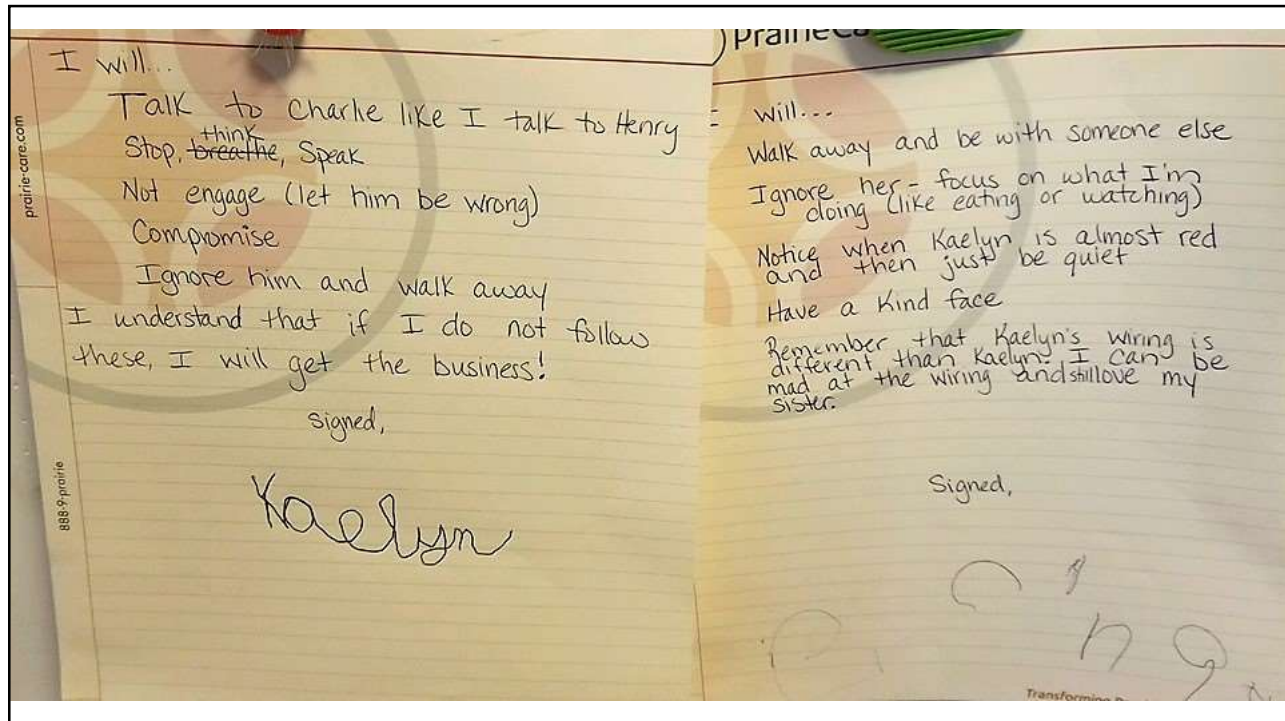 prairie-care.com
888-9-prairie
I will...
Talk to Charlie like I talk to Henry
think
Stop, breathe, Speak
Not engage (let him be wrong)
Compromise
Ignore him and walk away
I understand that if I do not follow
these, I will get the business!
signed,
Kaelyn
will...
Walk away and be with someone else
Ignore her - focus on what I'm
doing (like eating or watching)
Notice when Kaelyn is almost red
and then just be quiet
Have a kind face
Remember that Kaelyn's wiring is
different than Kaelyn. I can be
mad at the wiring and still love my
sister.
Signed,